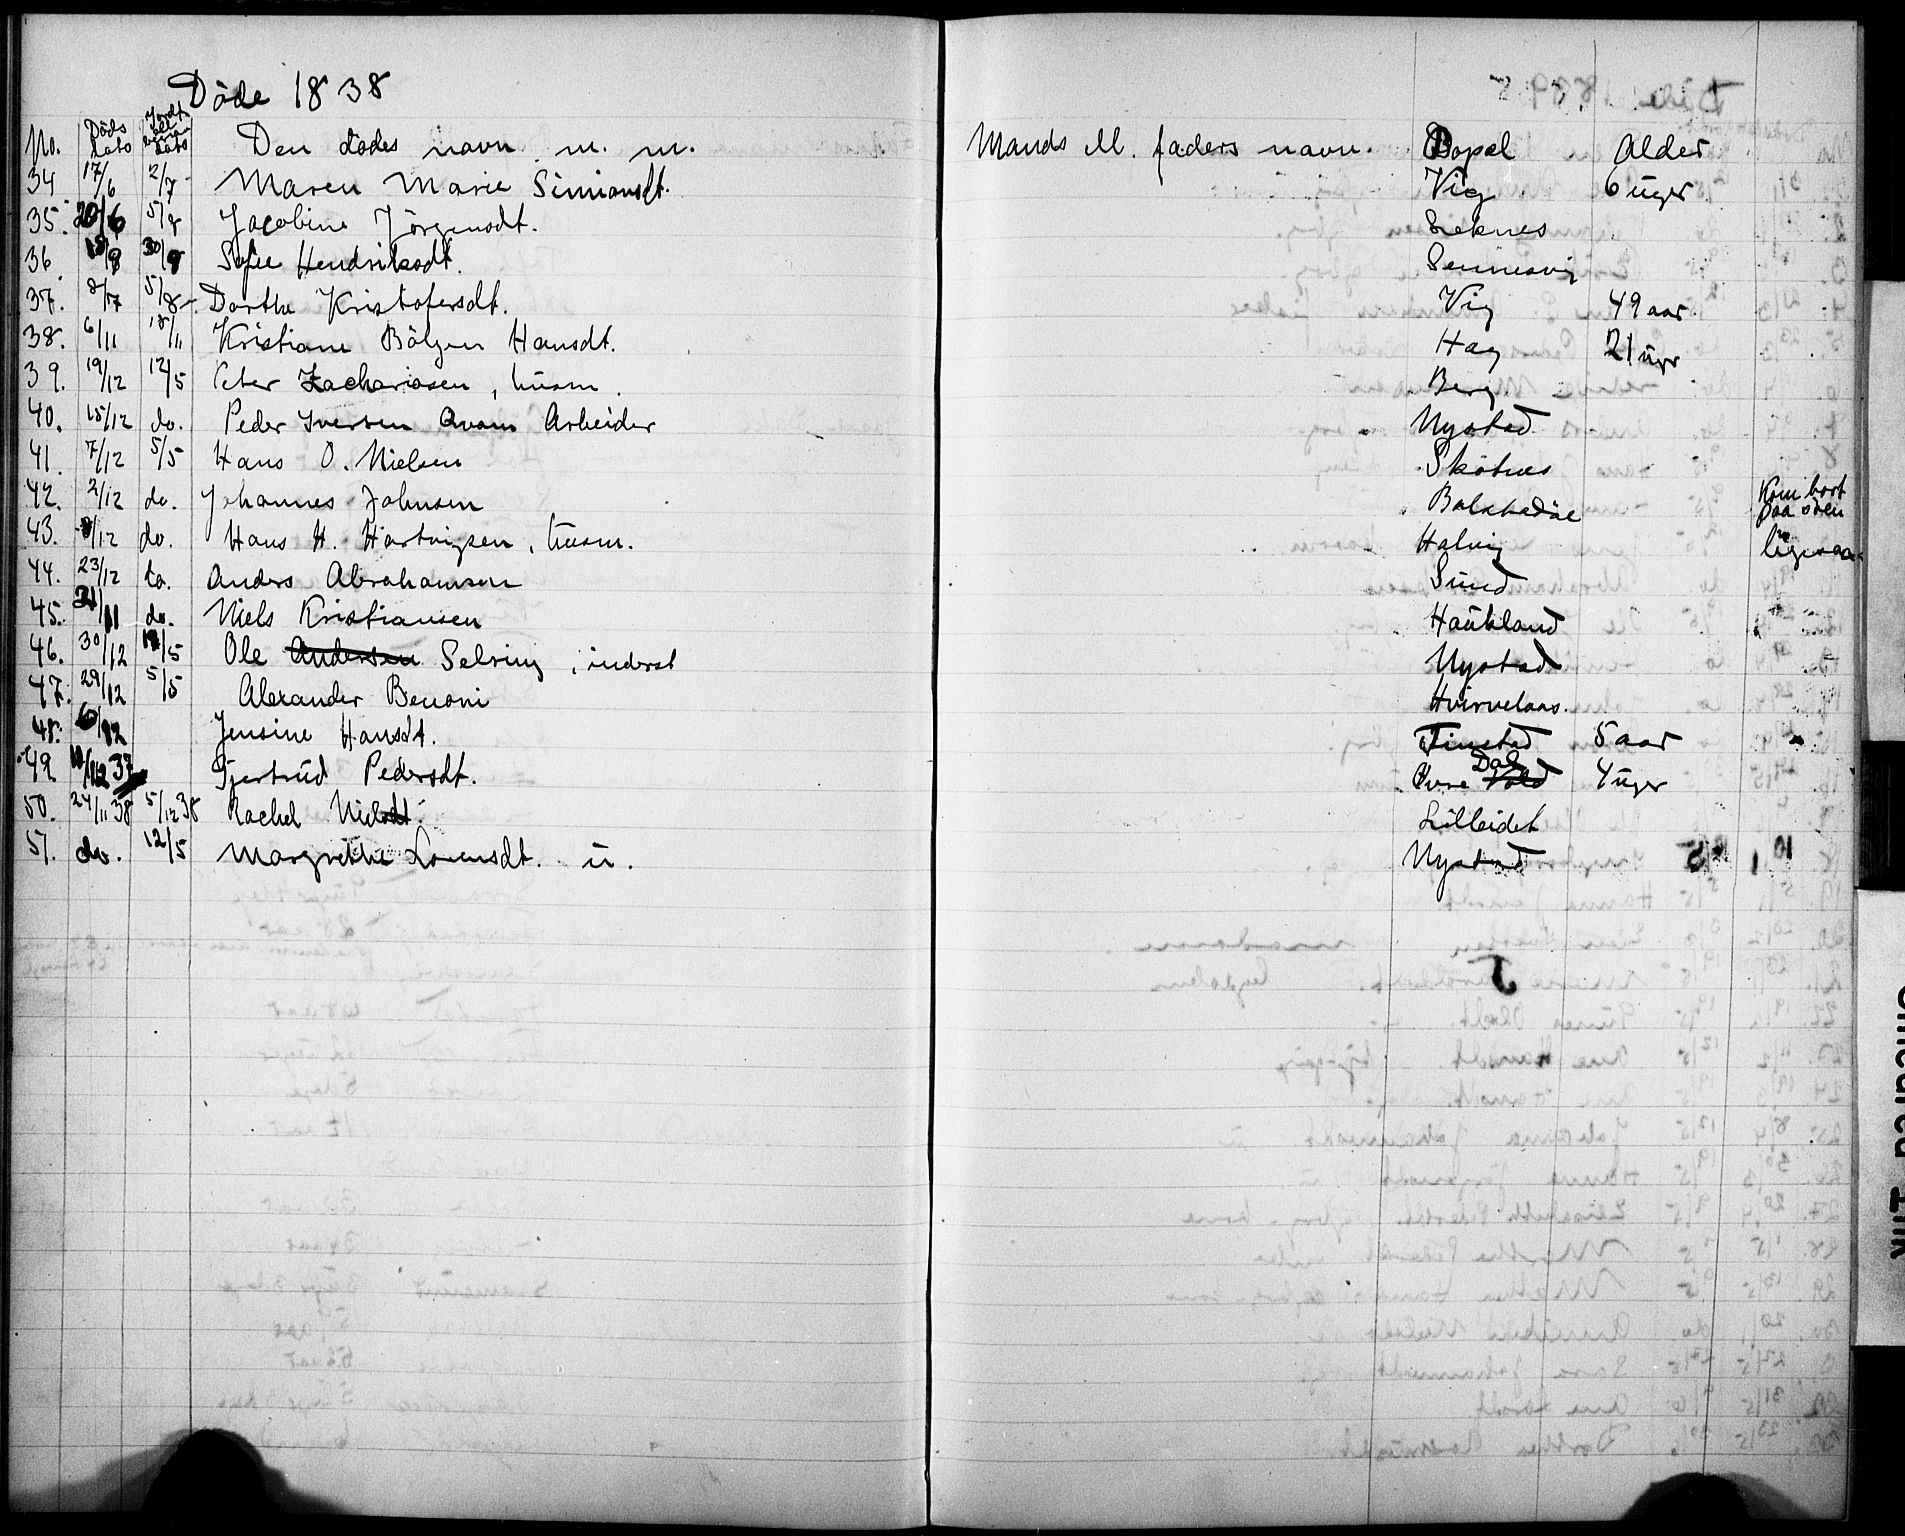 Döde 1838
No. Döds dato Jordf. ell. dato Den dödes navn m. m. Mands ell. faders navn. Bopæl Alder
34 17/6 2/7 Maren Marie Simonsdt. Vig 6 uger
35. 20/6 5/8 Jacobine Jörgensdt. Leknes
36 18/8 30/9 Sofie Hendriksdt. Sennesvig
37. 8/7 5/8 Dorthe Kristofersdt. Vig 49 aar
38. 6/11 18/11 Kristiane Bölgen Hansdt. Hag 21 uger
39. 19/12 12/5 Peter Zachariasen, husm. Berg
40. 15/12 do. Peder Iversen Qvam Arbeider Nystad
41. 7/12 5/5 Hans O. Nielsen Skötnes
42. 2/12 do. Johannes Johnsen Balstadöe Kom bort paa söen
43. 8/12 do. Hans H. Hartvigsen, husm. Halvig ligesaa
44. 23/12 do. Anders Abrahamsen Sund
45. 21/11 do. Niels Kristiansen Haukland
46. 30/12 12/5 Ole Andersen Selring, inderst Nystad
47. 29/12 5/5 Alexander Benoni Hvirvelaas.
48. 6/12 Jensine Hansdt. Finstad 5 aar
49 10/12 37 Gjertrud Pedersdt. Övre Vold Dal 4 uger
50. 24/11 38 5/12 38 Rachel Nielsdt. Lilleidet
51. do. 12/5 Margrethe Lorensdt. u. Nystad